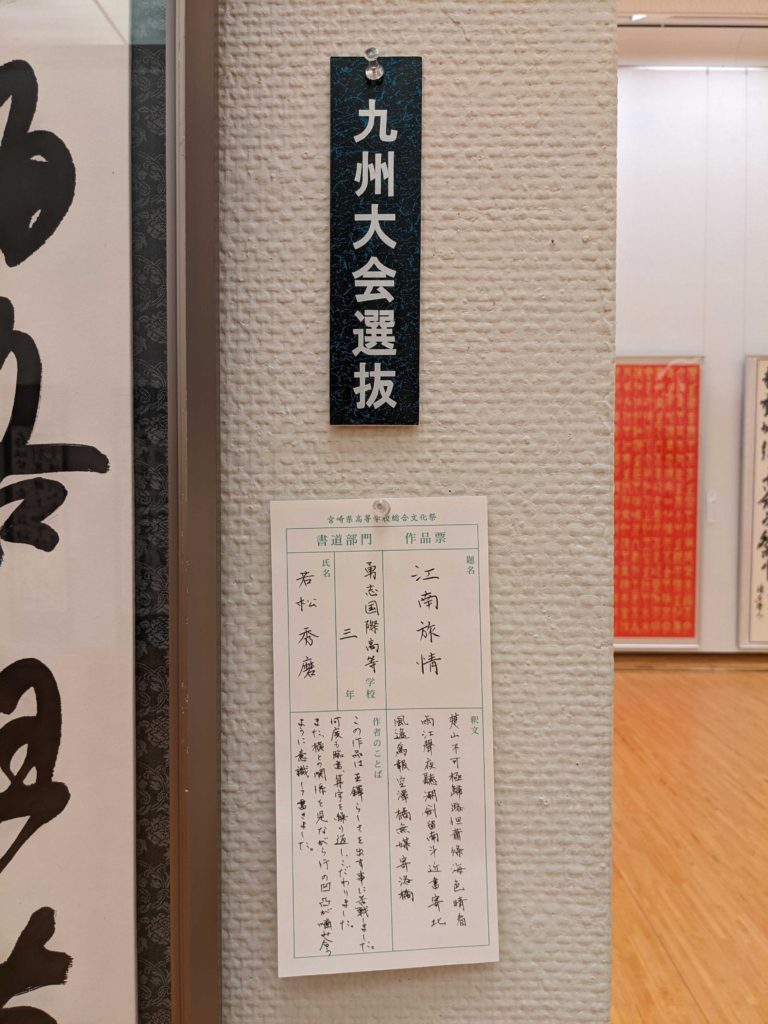 九州大会選抜
宮崎県高等学校総合文化祭
書道部門 作品票
題名
江南旅情
勇志国際高等学校
三年
氏名
若松秀磨
釈文
楚山不可極歸路但蕭條海色晴看
雨江聲夜聽潮劍留南斗近書寄北
風遥為報空潭橘無媒寄洛橋
作者のことば
この作品は王鐸らしさを出す事に苦戦しました。
何度も臨書、集字を繰り返し、こだわりました。
また、横との関係を見ながら行の凹凸が噛み合う
ように意識して書きました。